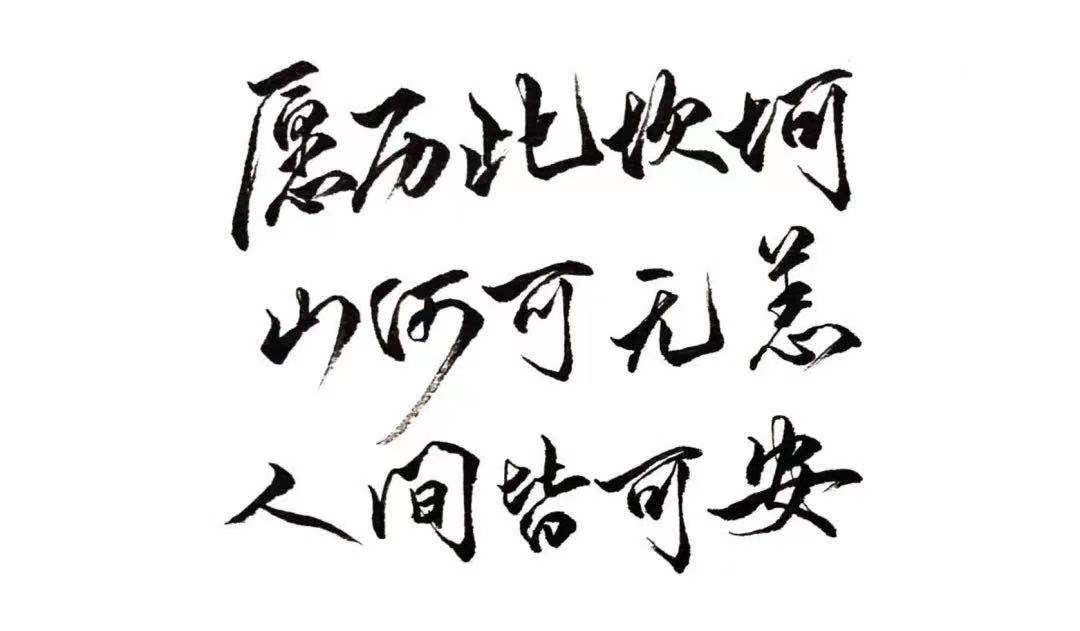 愿历此坎坷
山河可无恙
人间皆可安